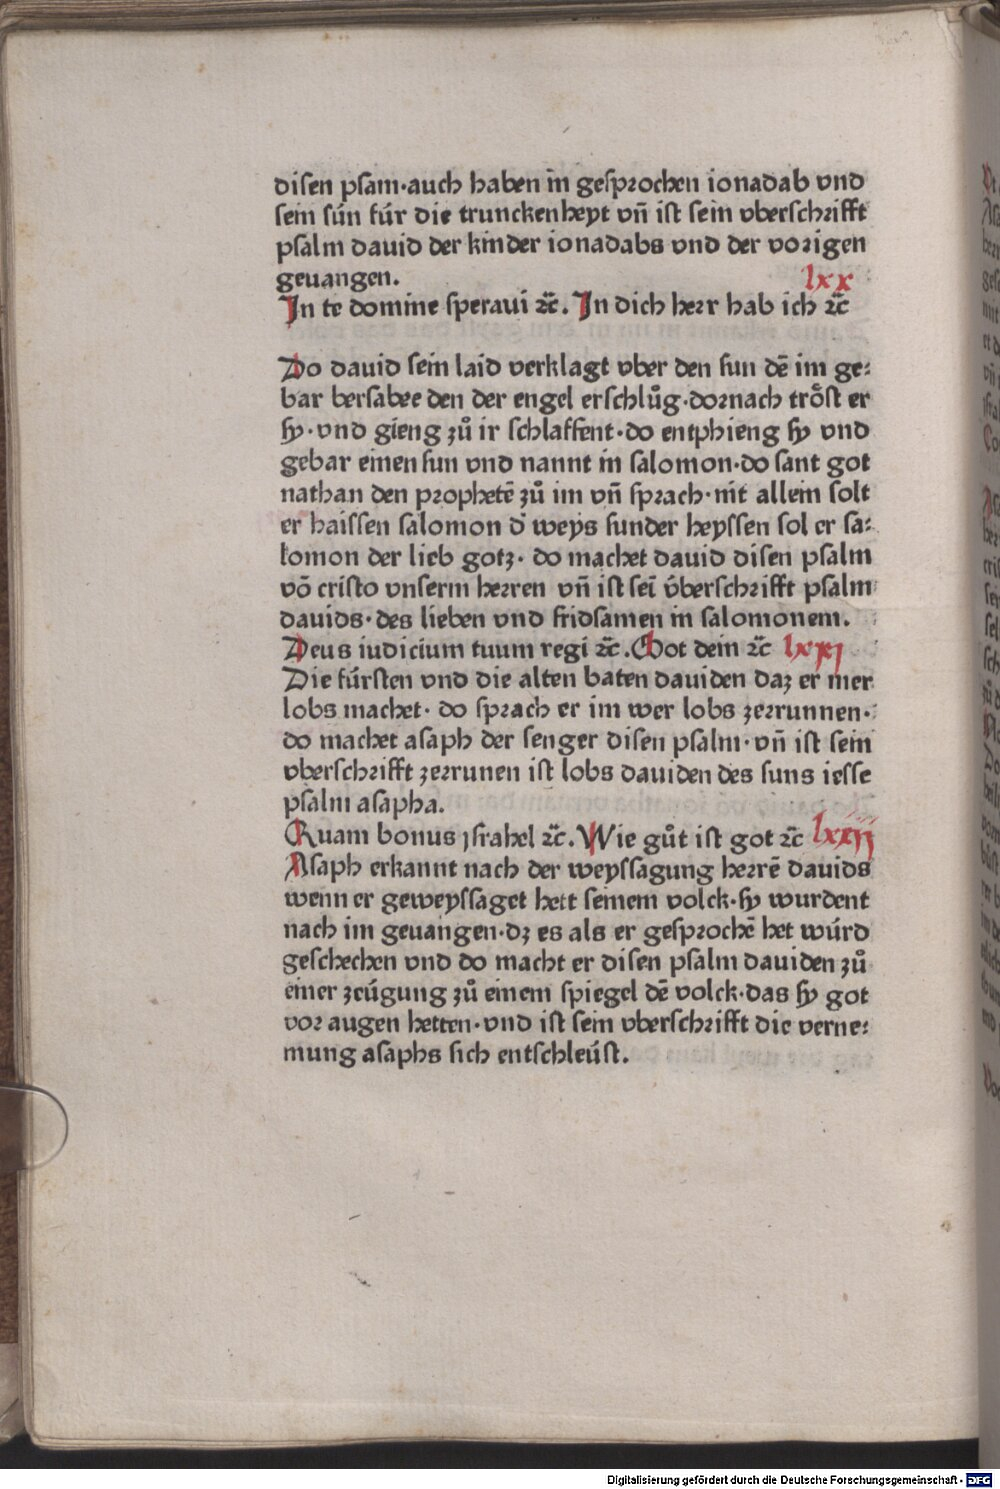 disen psam·auch haben in gesprochen ionadab vnd
sein sún fúr die trunckenheyt vñ ist sein vberschrifft
psalm dauid der kinder ionadabs vnd der vorigen
geuangen.
lxx
In te domine speraui ⁊c̃. In dich herr hab ich ⁊c̃
Do dauid sein laid verklagt vber den sun dē im ge⸗
bar bersabee den der engel erschlůg·dornach trőst er
sy·vnd gieng zů ir schlaffent·do entphieng sy vnd
gebar einen sun vnd nannt in salomon·do sant got
nathan den prophetē zů im vñ sprach·nit allein solt
er haissen salomon d̄ weys sunder heyssen sol er sa⸗
lomon der lieb gotz· do machet dauid disen psalm
võ cristo vnserm herren vñ ist seī v́berschrifft psalm
dauids·des lieben vnd fridsamen in salomonem.
Deus iudicium tuum regi ⁊c̃. Got dein ⁊c̃ lxxj
Die fúrsten vnd die alten baten dauiden daz er mer
lobs machet· do sprach er im wer lobs zerrunnen·
do machet asaph der senger disen psalm·vñ ist sein
vberschrifft zerrunen ist lobs dauiden des suns iesse
psalm asapha.
Quam bonus jsrahel ⁊c̃. Wie gůt ist got ⁊c̃ lxxij
Asaph erkannt nach der weyssagung herrē dauids
wenn er geweyssaget hett seinem volck·sy wurdent
nach im geuangen·dz es als er gesprochē het wúrd
geschechen vnd do macht er disen psalm dauiden zů
einer zeúgung zů einem spiegel dē volck·das sy got
vor augen hetten·vnd ist sein vberschrifft die verne⸗
mung asaphs sich entschleúst.
Digitalisierung gefördert durch die Deutsche Forschungsgemeinschaft - DFG